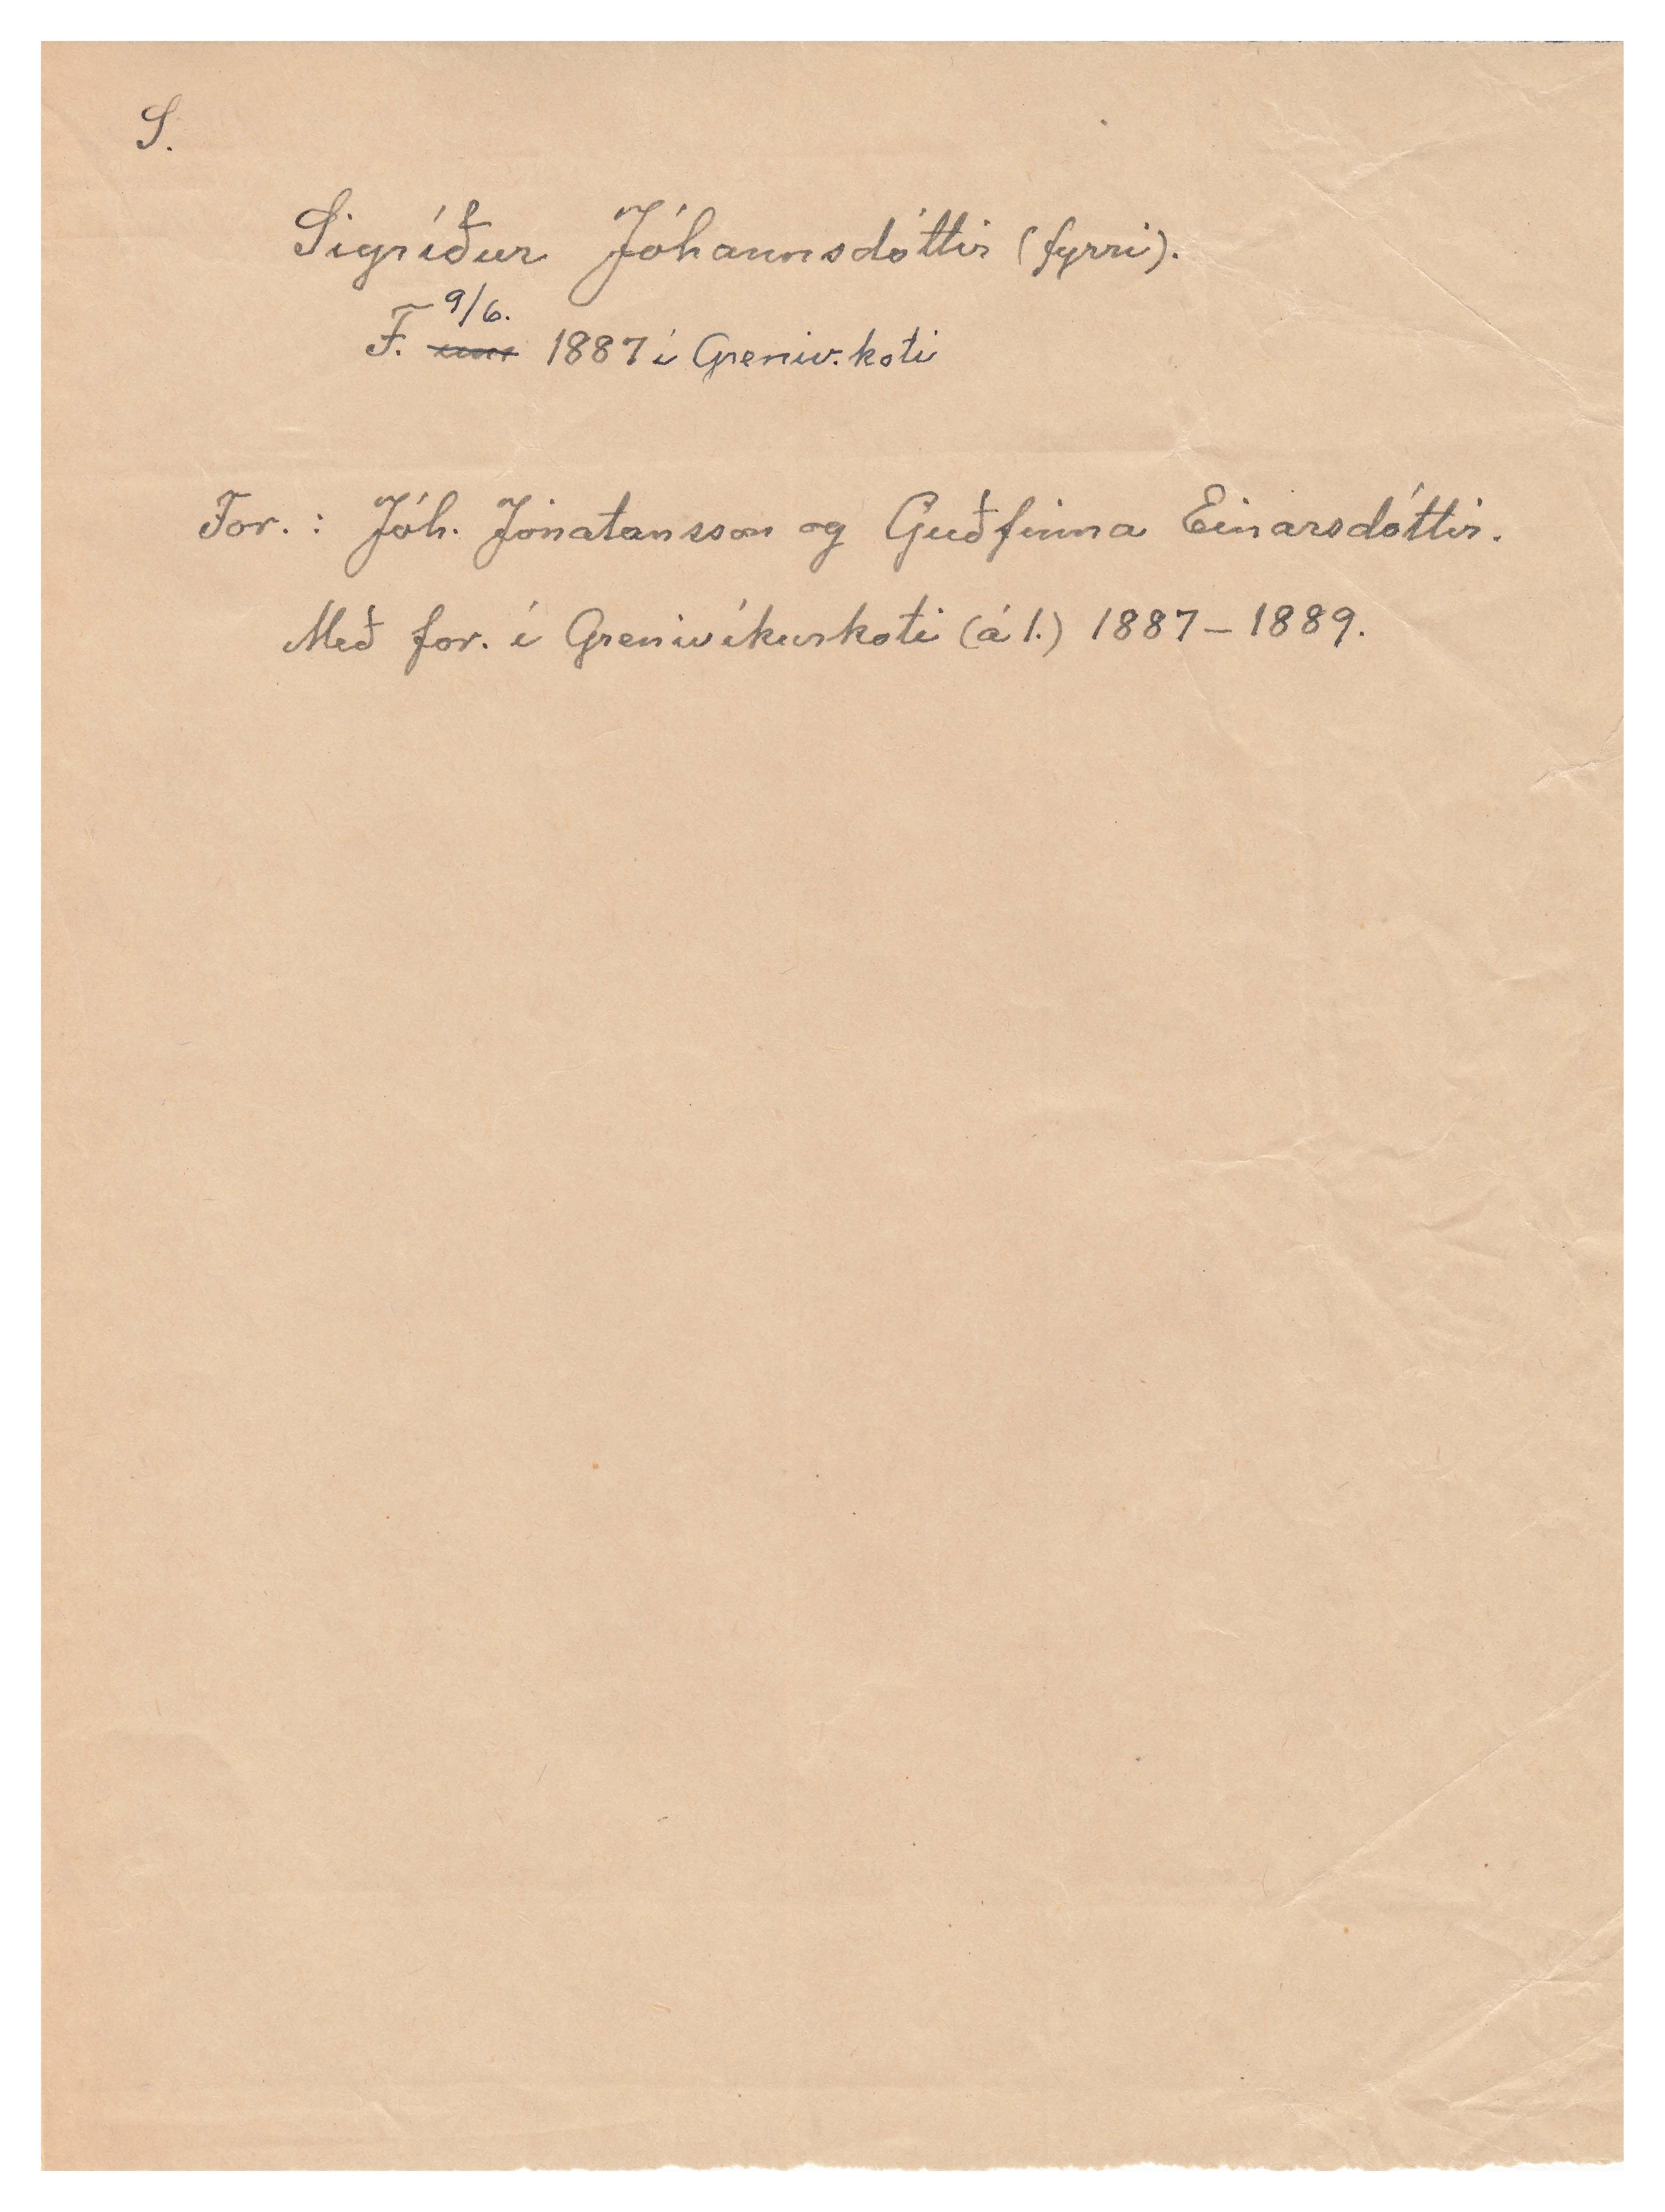 S.
Sigríður Jóhannsdóttir (fyrri).
F. 9/6. um 1887 í Greniv.koti
For.: Jóh. Jónatansson og Guðfinna Einarsdóttir.
Með for. í Grenivíkurkoti (á 1.) 1887-1889.